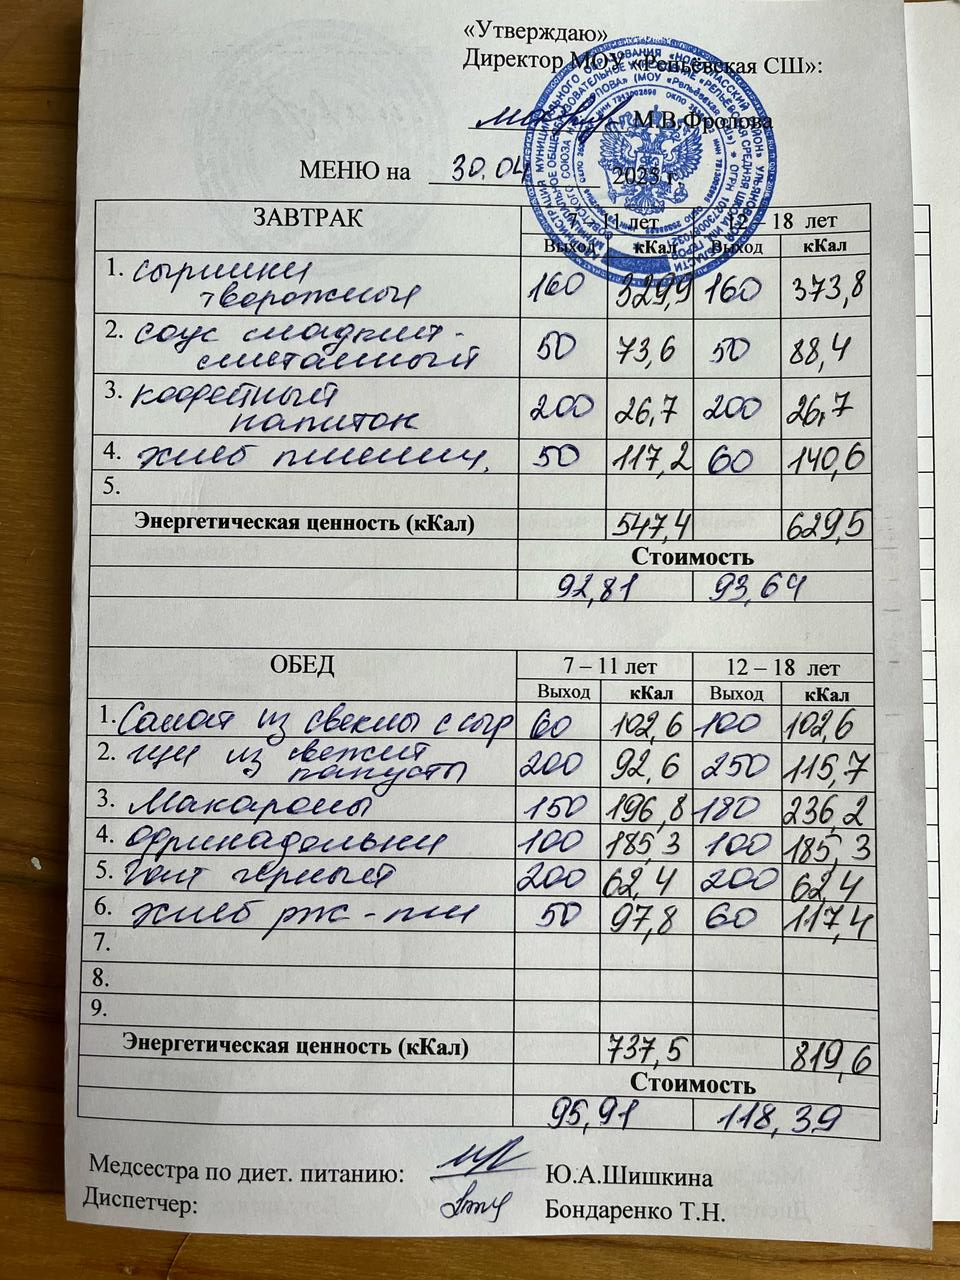 «Утверждаю»
Директор МОУ «Репьёвская СШ»:
М.В.Фролова
МЕНЮ на 30.04 2025 г.
ЗАВТРАК 7 – 11 лет 12 – 18 лет
Выход кКал Выход кКал
1. сырники
творожные 160 329,9 160 373,8
2. соус сладкий -
сметанный 50 73,6 50 88,4
3. кофейный
напиток 200 26,7 200 26,7
4. хлеб пшенич. 50 117,2 60 140,6
5.
Энергетическая ценность (кКал) 547,4 629,5
Стоимость
92,81 93,64
ОБЕД 7 – 11 лет 12 – 18 лет
Выход кКал Выход кКал
1. Салат из свеклы с сыр 60 102,6 100 102,6
2. щи из свежей
капусты 200 92,6 250 115,7
3. Макароны 150 196,8 180 236,2
4. фрикадельки 100 185,3 100 185,3
5. чай чёрный 200 62,4 200 62,4
6. хлеб рж - пш 50 97,8 60 117,4
7.
8.
9.
Энергетическая ценность (кКал) 737,5 819,6
Стоимость
95,91 118,39
Медсестра по диет. питанию: Ю.А.Шишкина
Диспетчер: Бондаренко Т.Н.